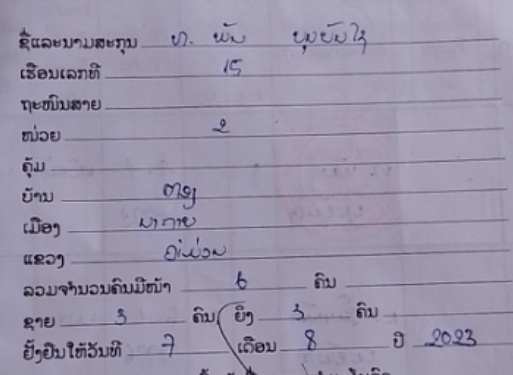 ຊື່ແລະນາມສະກຸນ ທ. ພັນ
ເຮືອນເລກທີ 15
ຖະໜົນສາຍ
ໜ່ວຍ 2
ຄຸ້ມ
ບ້ານ
ເມືອງ ນາກາຍ
ແຂວງ ຄຳມ່ວນ
ລວມຈຳນວນຄົນມີໜ້າ 6 ຄົນ
ຊາຍ 3 ຄົນ ຍິງ 3 ຄົນ
ຢັ້ງຢືນໃຫ້ວັນທີ 7 ເດືອນ 8 ປີ 2023